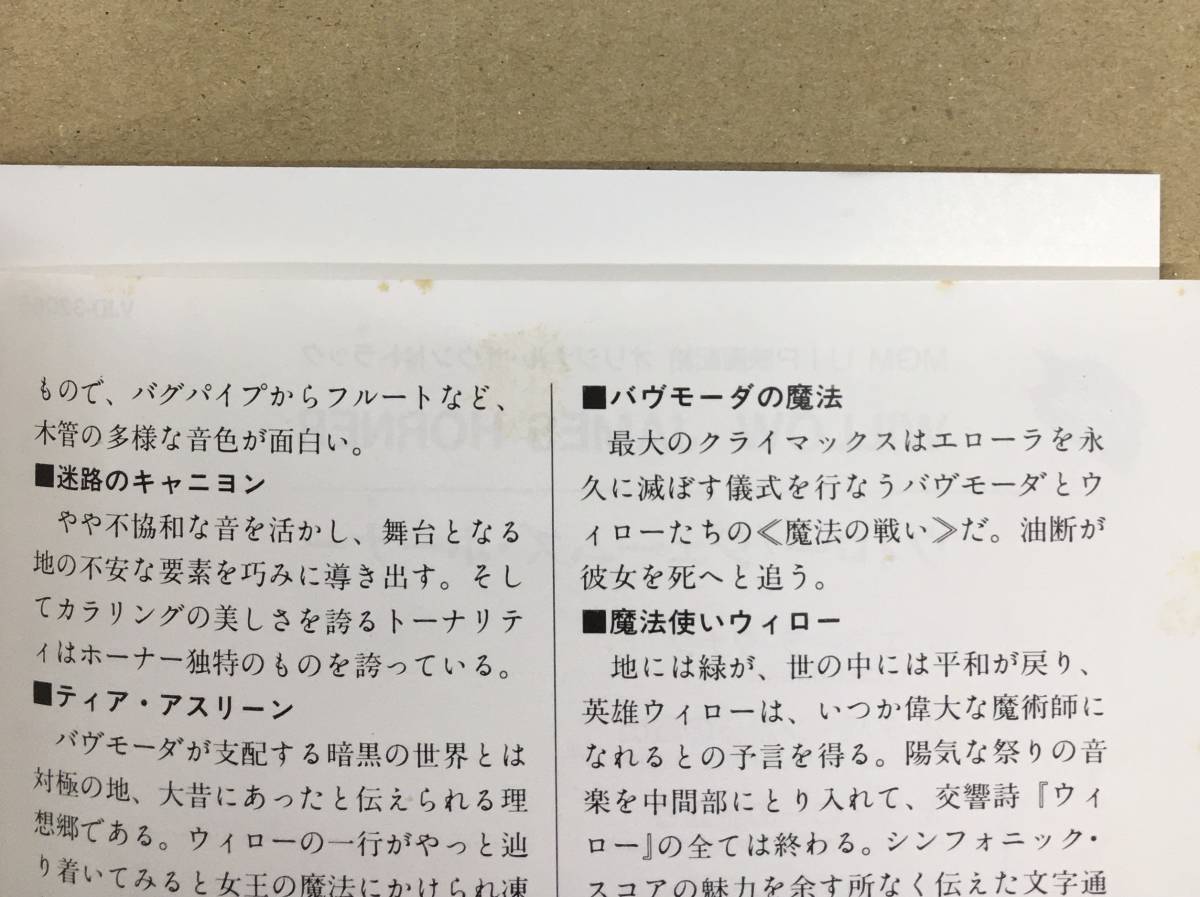 もので、バグパイプからフルートなど、
木管の多様な音色が面白い。
■迷路のキャニヨン
やや不協和な音を活かし、舞台となる
地の不安な要素を巧みに導き出す。そし
てカラリングの美しさを誇るトーナリテ
ィはホーナー独特のものを誇っている。
■ティア・アスリーン
バヴモーダが支配する暗黒の世界とは
対極の地、大昔にあったと伝えられる理
想郷である。ウィローの一行がやっと辿
り着いてみると女王の魔法にかけられ凍
■バヴモーダの魔法
最大のクライマックスはエローラを永
久に滅ぼす儀式を行なうバヴモーダとウ
ィローたちの≪魔法の戦い≫だ。油断が
彼女を死へと追う。
■魔法使いウィロー
地には緑が、世の中には平和が戻り、
英雄ウィローは、いつか偉大な魔術師に
なれるとの予言を得る。陽気な祭りの音
楽を中間部にとり入れて、交響詩『ウィ
ロー』の全ては終わる。シンフォニック・
スコアの魅力を余す所なく伝えた文字通